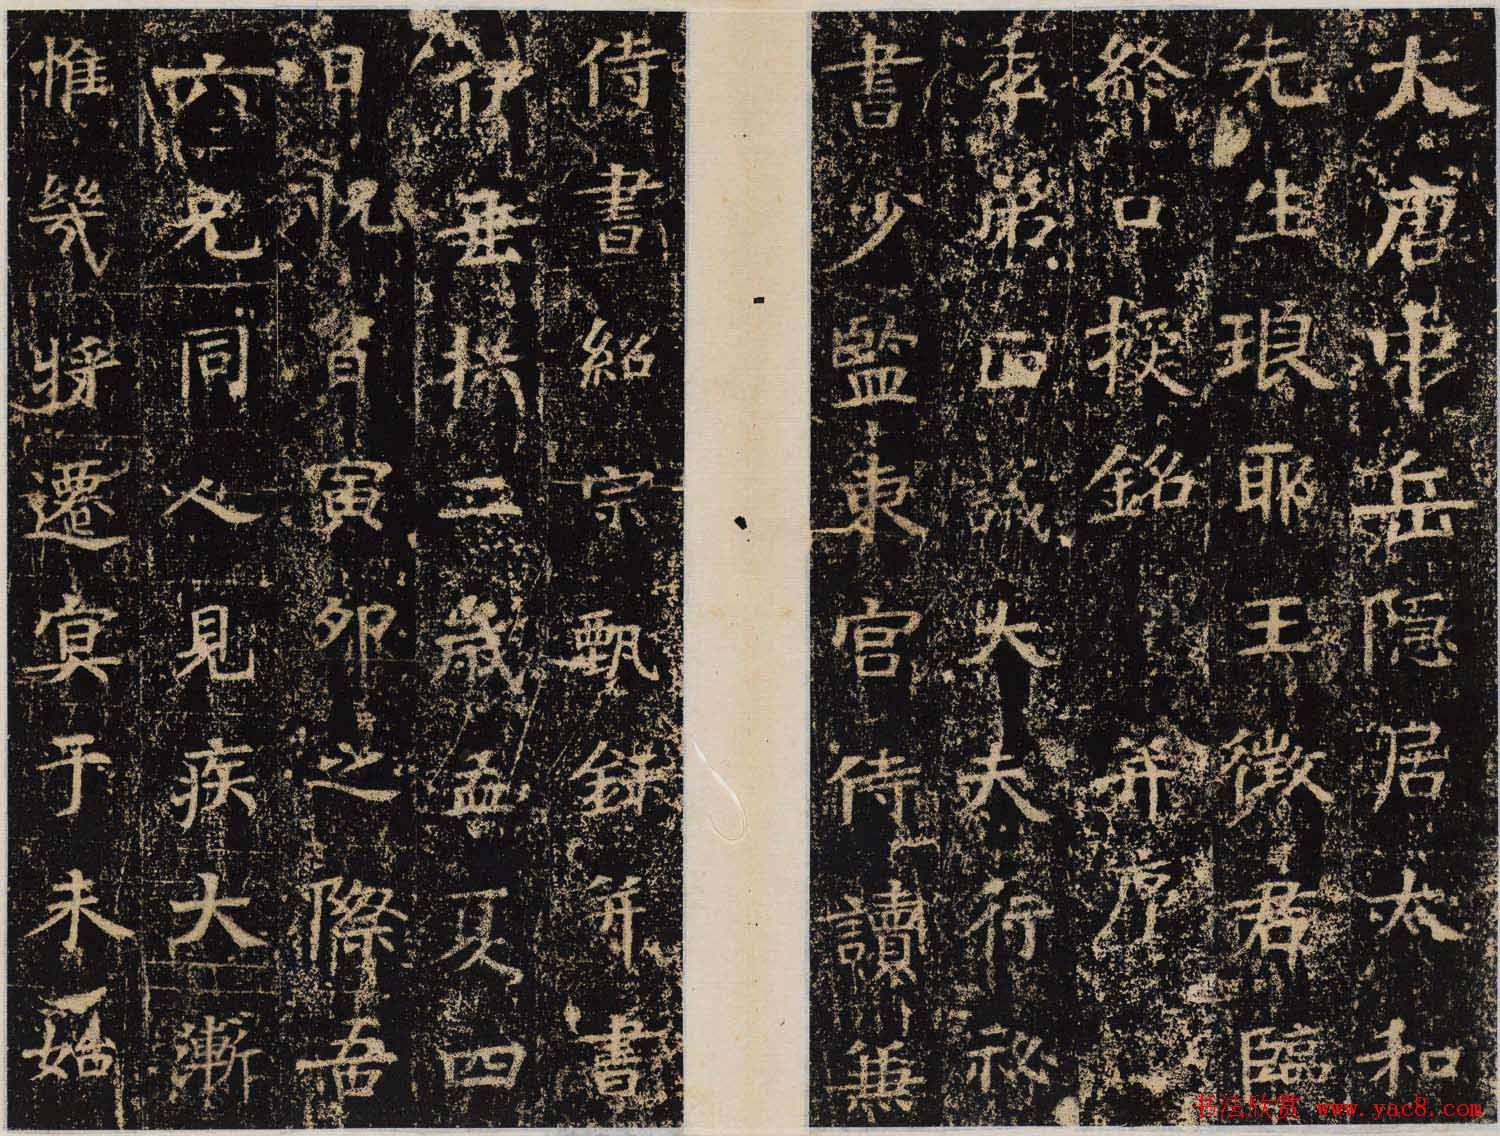 大唐中岳隱居太和
先生琅耶王徵君臨
終口授銘 并序
季弟正議大夫行祕
書少監東宮侍讀兼
侍書紹宗甄錄并書
伊垂拱二歲孟夏四
日寅卯之際吾
六兄同人見疾大漸
惟幾將遷冥于未始
书法欣赏 www.yac8.com